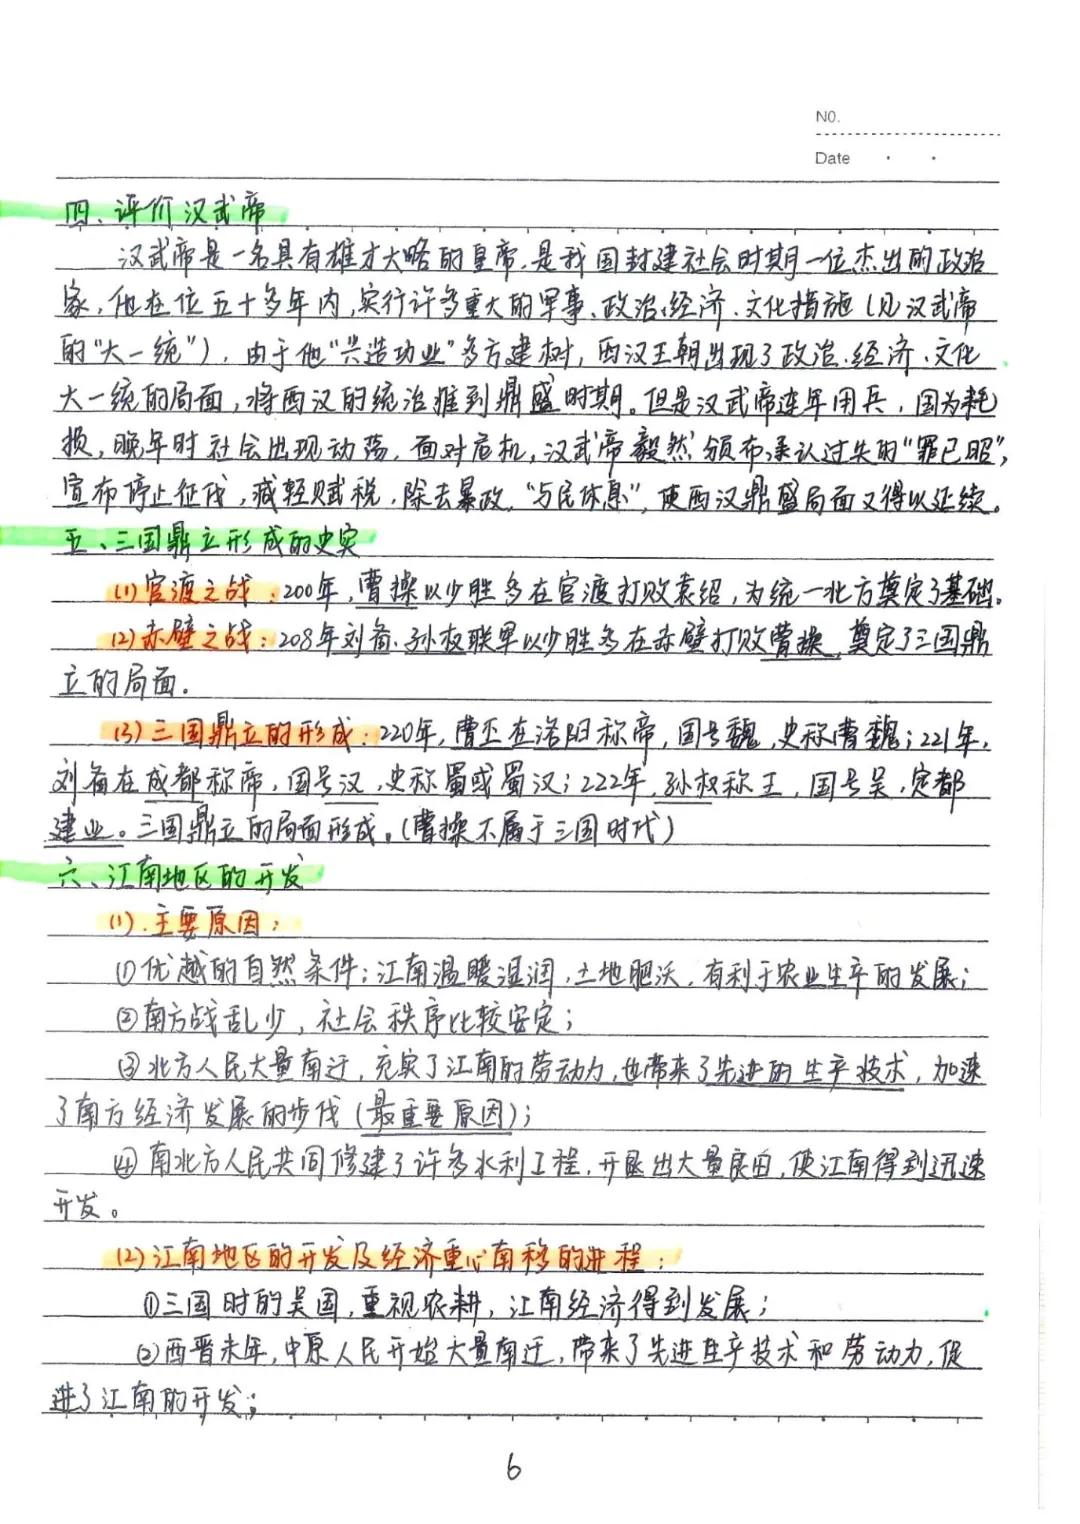 NO.
Date
四、评价汉武帝
汉武帝是一名具有雄才大略的皇帝,是我国封建社会时期一位杰出的政治
家,他在位五十多年内,实行许多重大的军事、政治、经济、文化措施(见汉武帝
的“大一统”),由于他“兴造功业”多方建树,西汉王朝出现了政治、经济、文化
大一统的局面,将西汉的统治推到鼎盛时期。但是汉武帝连年用兵,国力耗
损,晚年时社会出现动荡,面对危机,汉武帝毅然颁布承认过失的“罪己昭”,
宣布停止征伐,减轻赋税,除去暴政,“与民休息”,使西汉鼎盛局面又得以延续。
五、三国鼎立形成的史实
(1)官渡之战:200年,曹操以少胜多在官渡打败袁绍,为统一北方奠定了基础。
(2)赤壁之战:208年刘备、孙权联军以少胜多在赤壁打败曹操,奠定了三国鼎
立的局面。
(3)三国鼎立的形成:220年,曹丕在洛阳称帝,国号魏,史称曹魏;221年,
刘备在成都称帝,国号汉,史称蜀或蜀汉;222年,孙权称王,国号吴,定都
建业。三国鼎立的局面形成。(曹操不属于三国时代)
六、江南地区的开发
(1).主要原因:
①优越的自然条件:江南温暖湿润,土地肥沃,有利于农业生产的发展;
②南方战乱少,社会秩序比较安定;
③北方人民大量南迁,充实了江南的劳动力,也带来了先进的生产技术,加速
了南方经济发展的步伐(最重要原因);
④南北方人民共同修建了许多水利工程,开垦出大量良田,使江南得到迅速
开发。
(2)江南地区的开发及经济重心南移的进程:
①三国时的吴国,重视农耕,江南经济得到发展;
②西晋末年,中原人民开始大量南迁,带来了先进生产技术和劳动力,促
进了江南的开发;
6